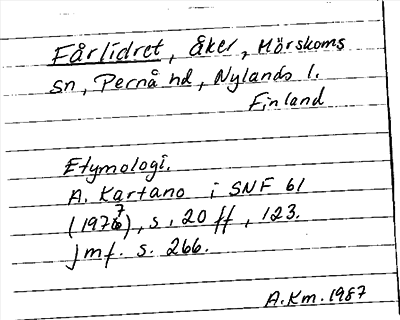 Fårlidret, åker, Mörskoms
sn, Pernå hd, Nylands l.
Finland
Etymologi.
A. Kartano i SNF 61
(1977), s. 20 ff, 123.
jmf. s. 266.
A.Km. 1987